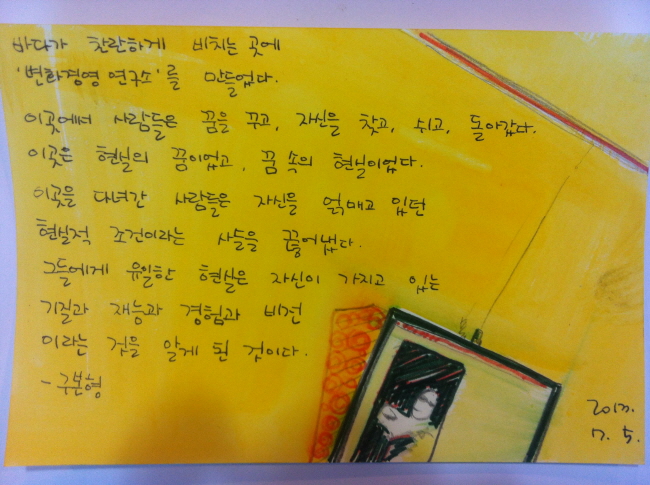 바다가 찬란하게 비치는 곳에
'변화경영 연구소'를 만들었다.
이곳에서 사람들은 꿈을 꾸고, 자신을 찾고, 쉬고, 돌아갔다.
이곳은 현실의 꿈이었고, 꿈 속의 현실이었다.
이곳을 다녀간 사람들은 자신을 얽매고 있던
현실적 조건이라는 사슬을 끊어냈다.
그들에게 유일한 현실은 자신이 가지고 있는
기질과 재능과 경험과 비전
이라는 것을 알게 된 것이다.
- 구본형
7. 5.